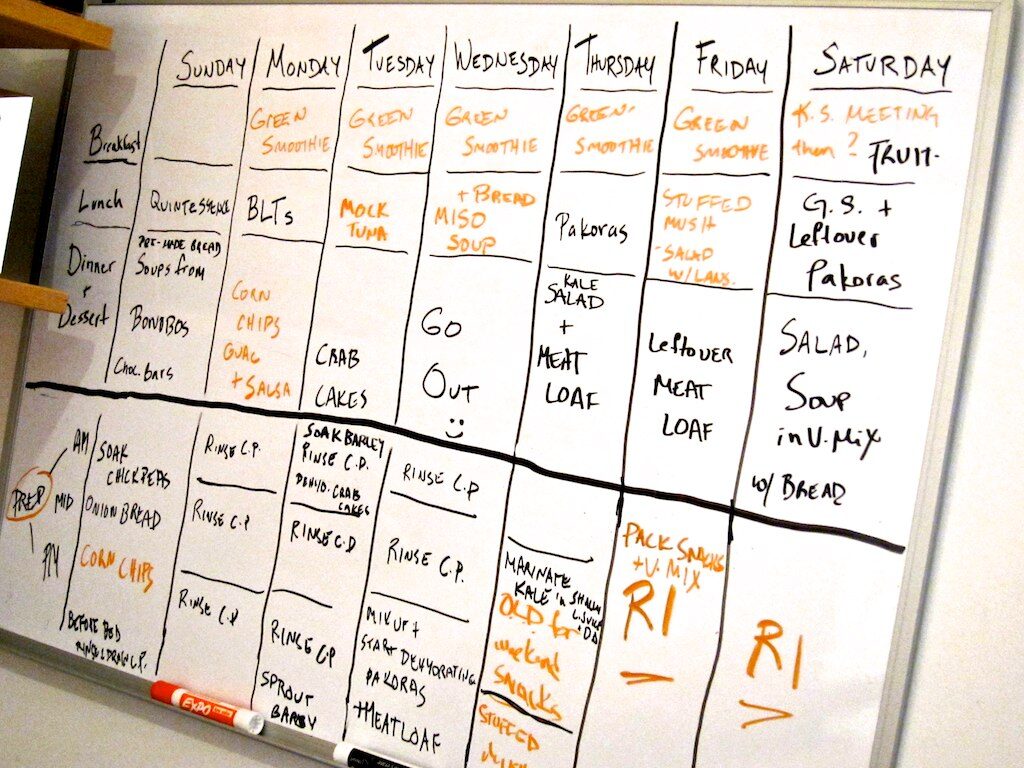 SUNDAY MONDAY TUESDAY WEDNESDAY THURSDAY FRIDAY SATURDAY
Breakfast
GREEN
SMOOTHIE
GREEN
SMOOTHIE
GREEN
SMOOTHIE
GREEN
SMOOTHIE
GREEN
SMOOTHIE
K.S. MEETING
then? FRUIT.
Lunch
QUINTESSENCE
BLTs
MOCK
TUNA
+ BREAD
MISO
SOUP
Pakoras
STUFFED
MUSH
SALAD
G.S. +
Leftover
Pakoras
Dinner
+
Dessert
PRE-MADE BREAD
Soups from
BONOBOS
Choc. Bars
CORN
CHIPS
GUAC
+ SALSA
CRAB
CAKES
GO
OUT
KALE
SALAD
+
MEAT
LOAF
Leftover
MEAT
LOAF
SALAD,
Soup
in V. Mix
w/ BREAD
PREP
AM
MID
PM
SOAK
CHICKPEAS
ONION BREAD
CORN CHIPS
BEFORE BED
RINSE & DRAIN C.P.
RINSE C.P.
RINSE C.P
RINSE C.P
SOAK BARLEY
RINSE C.P.
DEHYD. CRAB
CAKES
RINSE C.P
RINSE C.P
SPROUT
BARLEY
RINSE C.P
RINSE C.P.
MIX UP +
START DEHYDRATING
PAKORAS
+ MEATLOAF
MARINATE
KALE in
for
weekend
SNACKS
STUFFED
PACK SNACKS
+ V. MIX
RI
RI
EXPO